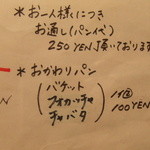 ＊お一人様につき
お通し(パン代)
250YEN頂いております
＊おかわりパン
(バケット
フォカッチャ
チャバタ)
1個
100YEN
N